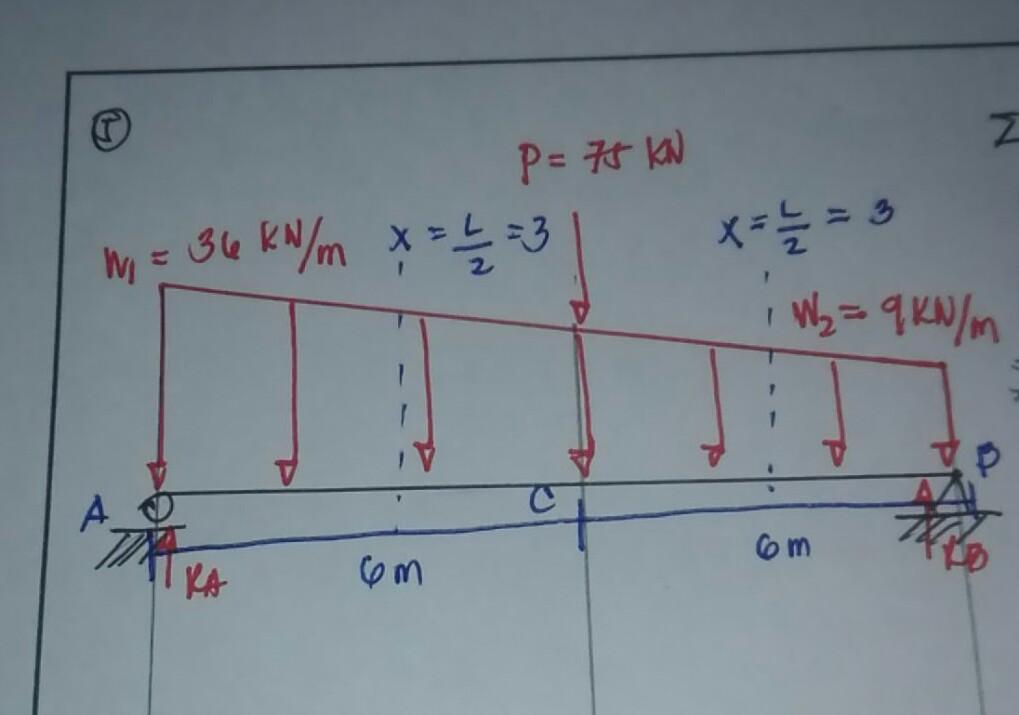 5
Σ
P = 75 KN
W₁ = 36 KN/m
x = L/2 = 3
x = L/2 = 3
W₂ = 9 KN/m
A
C
B
RA
6 m
6 m
RB